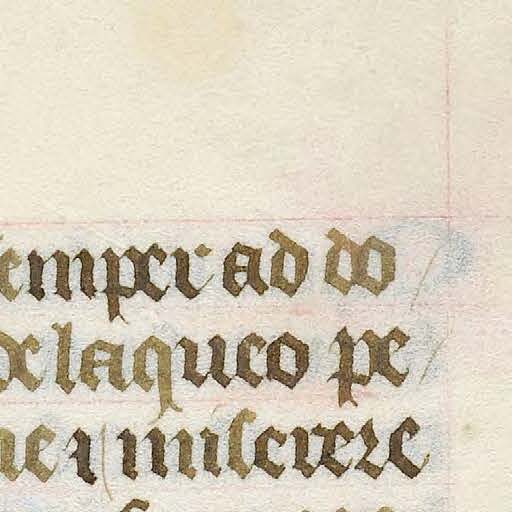 emper ad do
de laqueo pe
me ⁊ miserere